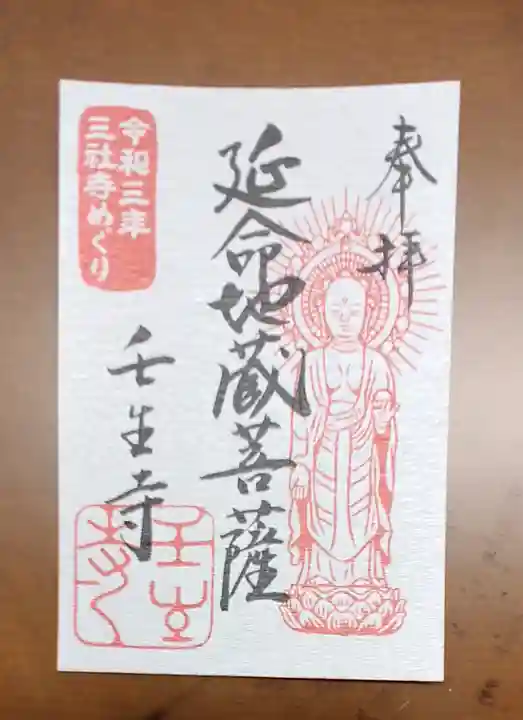 奉拝
延命地蔵菩薩
壬生寺
令和三年
三社寺めぐり
壬生
寺